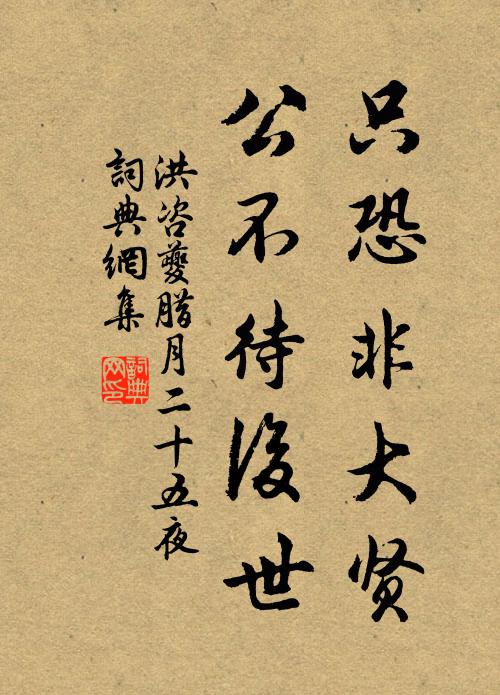 只恐非大贤
公不待後世
洪咨夔腊月二十五夜
詞典網集
詞典网印